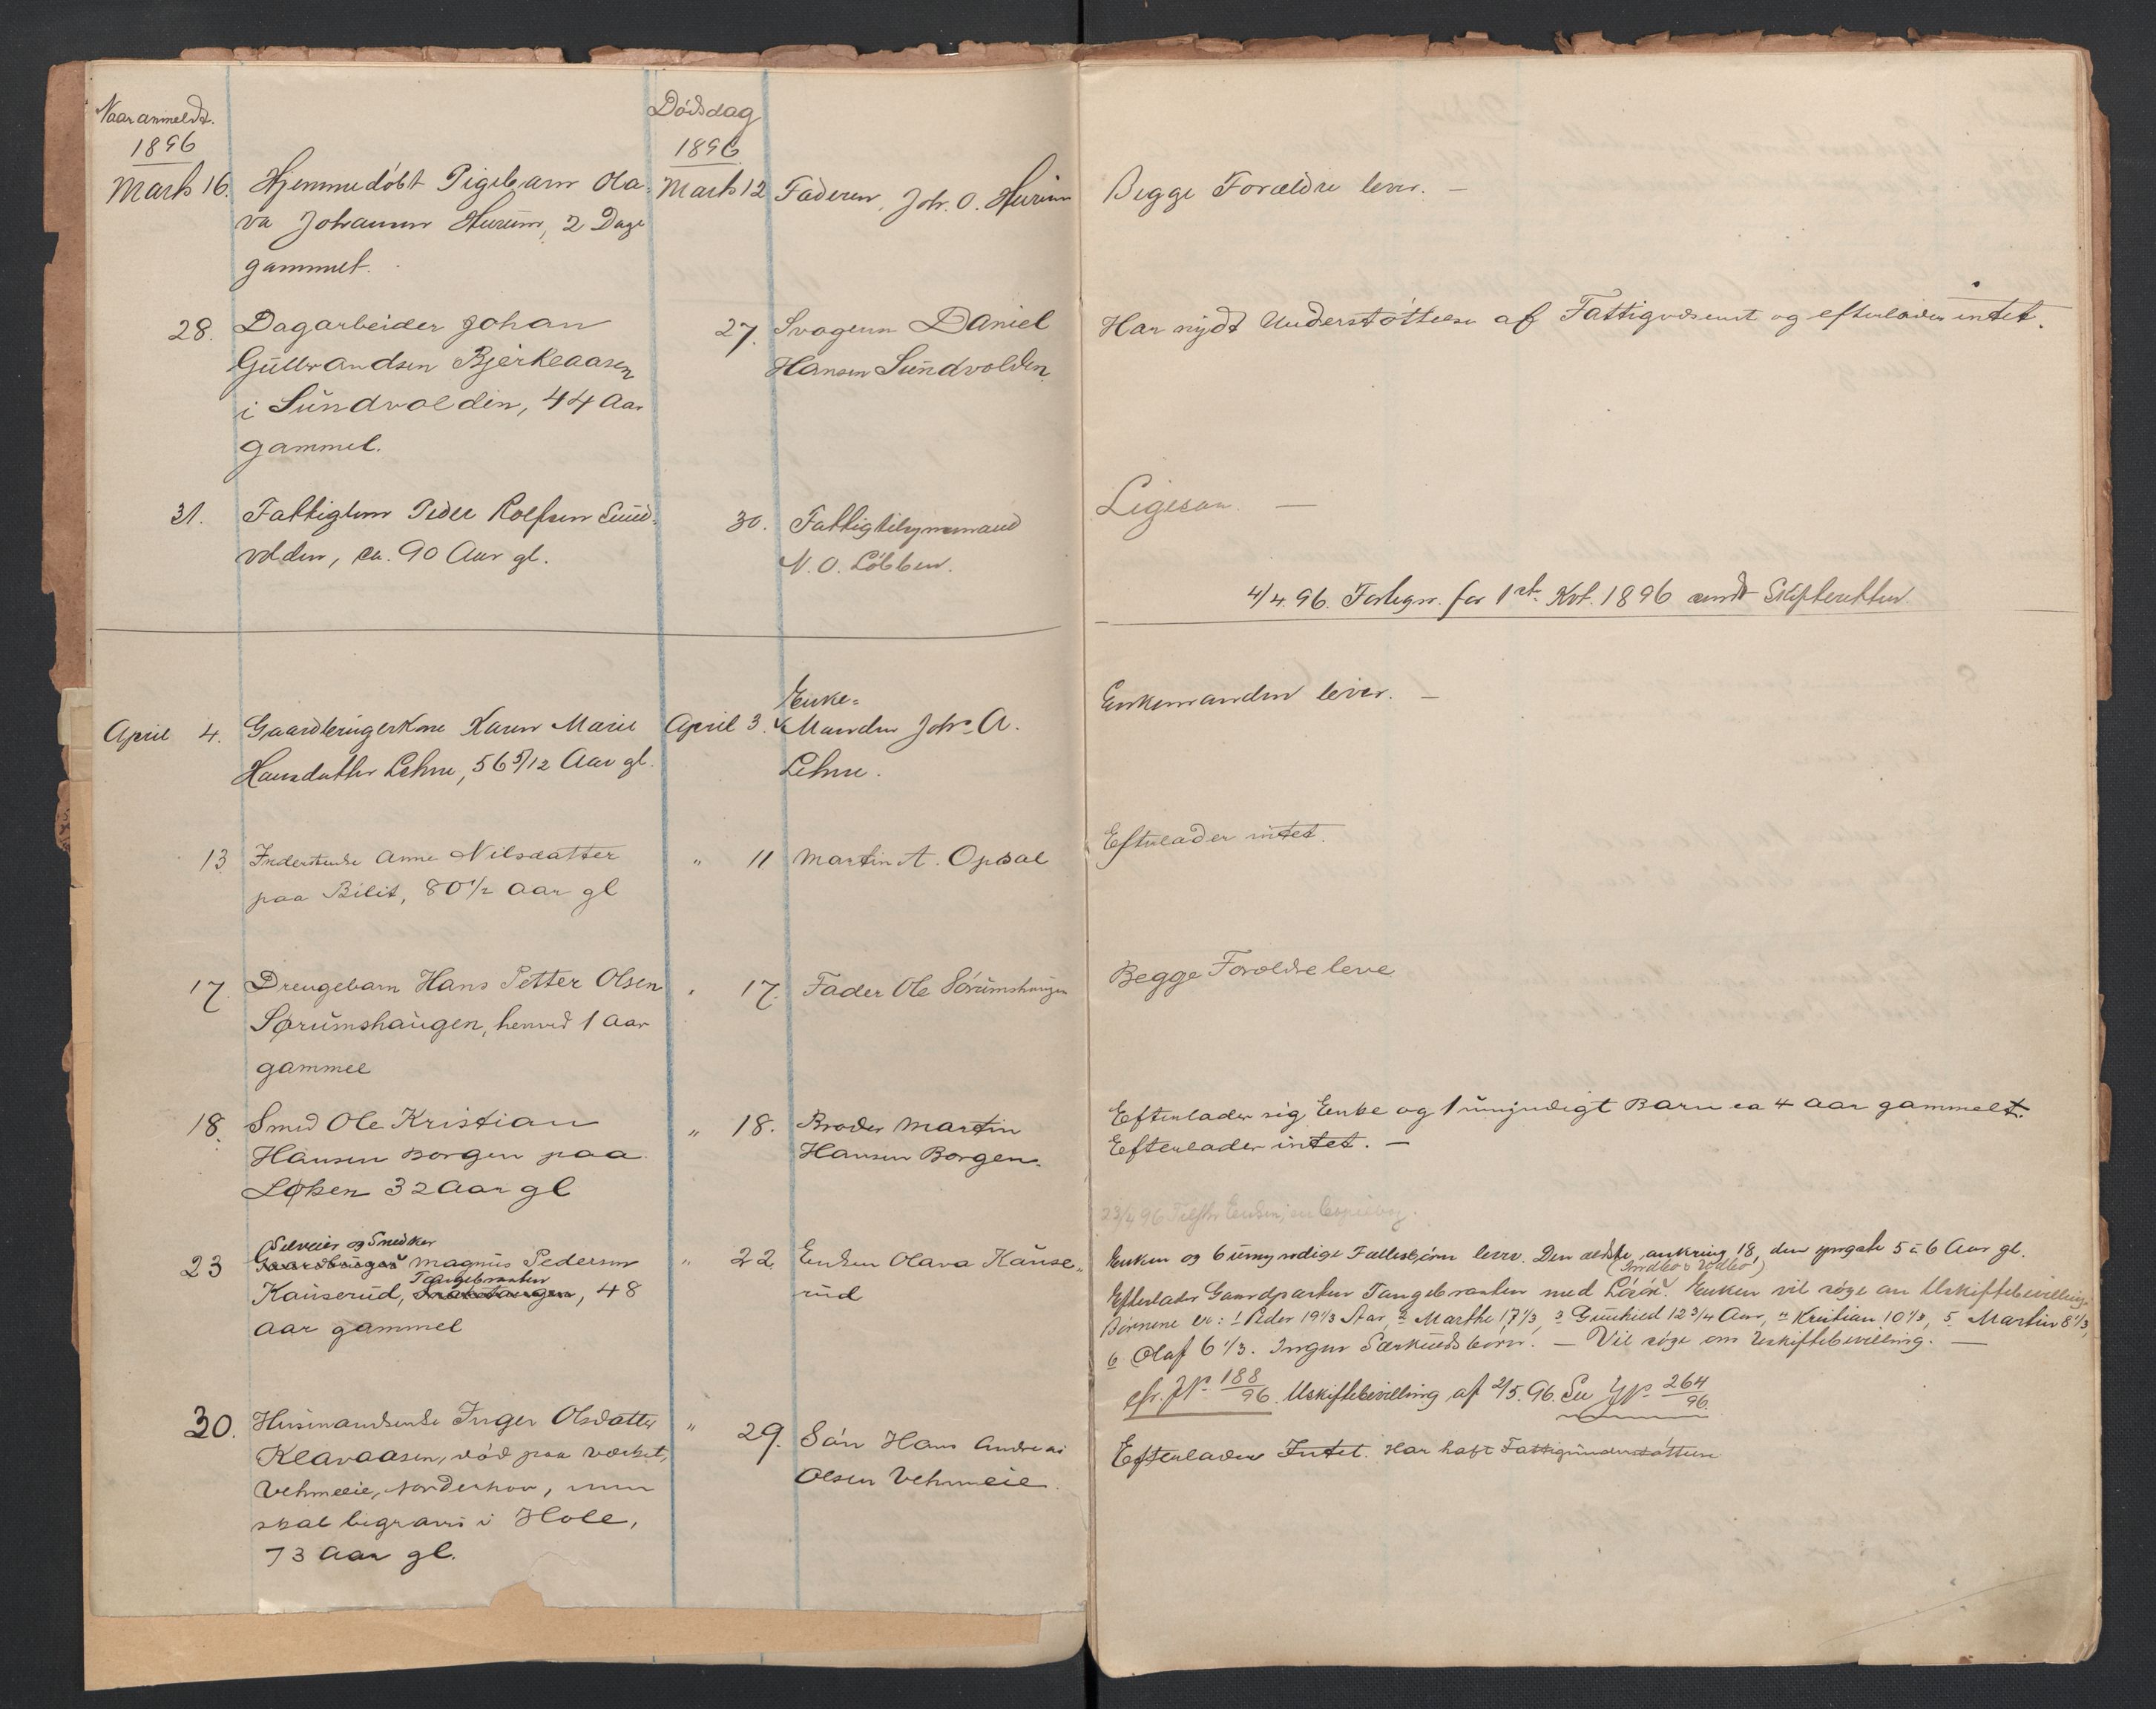 Naar anmeldt.
1896
Dødsdag
1896
Marts 16. Hjemmedøbt Pigebarn Ola- Marts 12 Faderen, Joh. O. Hurum Begge Forældre lever. —
va Johanne Hurum, 2 Dage
gammel.
28. Dagarbeider Johan 27. Svogeren Daniel Har nydt Understøttelse af Fattigvæsenet og efterlader intet.
Gulbrandsen Bjerkeaasen Hansen Sundvolden
i Sundvolden, 44 Aar
gammel.
31. Fattiglem Peder Rolfsen Sund- 30. Fattigtilsynsmand Ligesaa. —
volden, ca. 90 Aar gl. N. O. Løbben.
4/4 96. Fortegn. for 1ste Kvt. 1896 sendt Skifteretten.
Enke-
April 4. Gaardbrugerkone Karen Marie April 3. Manden Joh. A. Enkemanden lever. —
Hansdatter Lehne, 56 5/12 Aar gl. Lehne.
13 Inderstenke Anne Nilsdatter " 11 Martin A. Opsal Efterlader intet.
paa Bilit, 80 1/2 Aar gl
17. Drengebarn Hans Petter Olsen " 17. Fader Ole Sørumshaugen Begge Forældre leve
Sørumshaugen, henved 1 Aar
gammel
18. Smed Ole Kristian " 18. Broder Martin Efterlader sig Enke og 1 umyndigt Barn ca 4 Aar gammelt.
Hansen Borgen paa Hansen Borgen. Efterlader intet. —
Løken 32 Aar gl
23/4 96 Enken,
Selveier og Snedker
23 Gaardbruger Magnus Pedersen " 22. Enken Olava Kause- Enken og 6 umyndige Fællesbørn lever. Den ældste omkring 18, den yngste 5 à 6 Aar gl.
Tangebraaten
Kauserud, , 48 rud Efterlader Gaardparten Tangebraaten med Løsøre. Enken vil søge om Uskiftebevilling.
Aar gammel Børnene er: 1 Peder 19 1/3 Aar, 2 Marthe 17 1/3, 3 Gunhild 12 3/4 Aar, 4 Kristian 10 1/3, 5. Martin 8 1/3,
6 Olaf 6 1/3. Ingen Særkuldsbørn. — Vil søge om Uskiftebevilling. —
cfr. JN. 188/96. Uskiftebevilling af 2/5. 96. Se JN. 264/96.
30. Husmandsenke Inger Olsdatter " 29. Søn Hans Andreas Efterlader Intet. Har haft Fattigunderstøttelse
Klavaasen, død paa Værket, Olsen Vehmeeie.
Vehmeeie, Norderhov, men
skal begraves i Hole,
73 Aar gl.